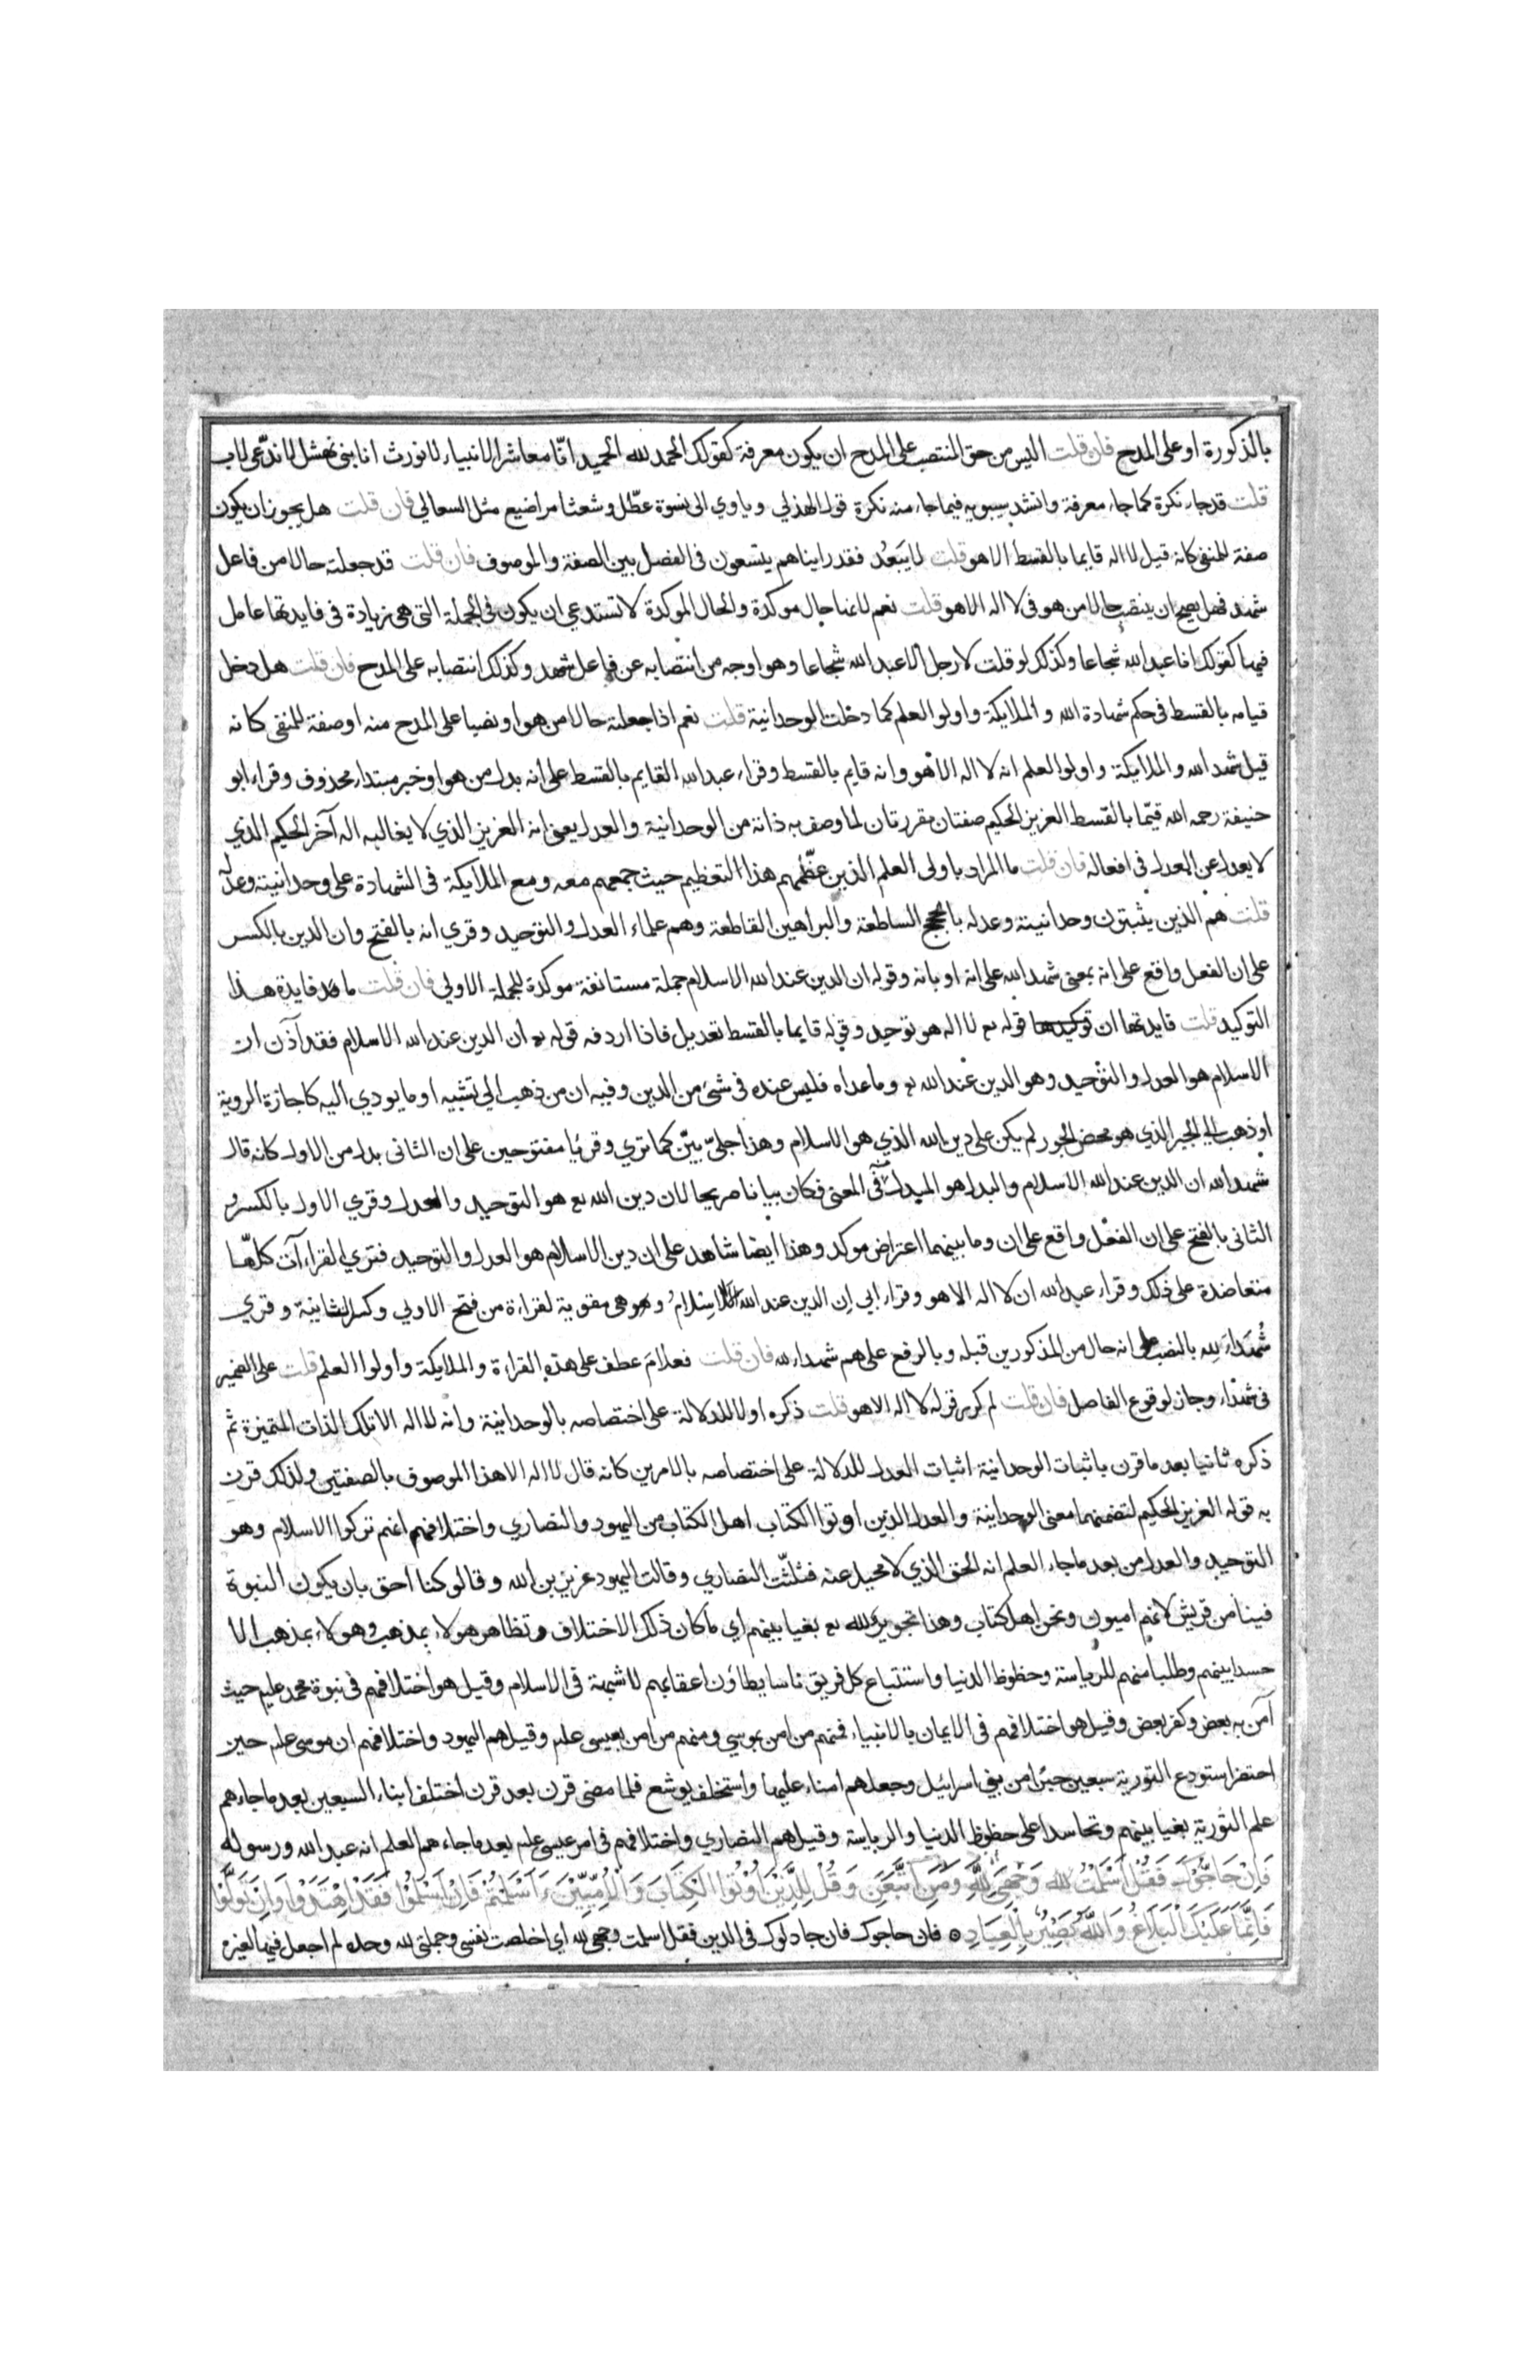 بالذكورة او على المدح فان قلت اليس من حق المنتصب على المدح ان يكون معرفة كقولك الحمد لله الحميد انّا معاشر الانبياء لا نورث انا بنى نهشل لا ندّعى لاب
قلت قد جاء نكرة كما جاء معرفة وانشد سيبويه فيما جاء منه نكرة قول الهذلي وياوي الى نسوة عطّل وشعثا مراضيع مثل السعالي فان قلت هل يجوز ان يكون
صفة للمنفى كانه قيل لا اله قايما بالقسط الا هو قلت لا يَبَعُد فقد رايناهم يتسعون فى الفصل بين الصفة والموصوف فان قلت قد جعلته حالا من فاعل
شهد فهل يصح ان ينتصب حالا من هو فى لا اله الا هو قلت نعم لانها حال موكدة والحال الموكدة لا تستدعي ان يكون فى الجملة التى هى زيادة فى فايدتها عامل
فيها كقولك انا عبد الله شجاعا وكذلك لو قلت لا رجل الا عبد الله شجاعا وهو اوجه من انتصابه عن فاعل شهد وكذلك انتصابه على المدح فان قلت هل دخل
قيامه بالقسط فى حكم شهادة الله والملايكة واولو العلم كما دخلت الوحدانية قلت نعم اذا جعلته حالا من هو او نصبا على المدح منه او صفة للمنفى كانه
قيل شهد الله والملايكة واولو العلم انه لا اله الا هو وانه قايم بالقسط وقراء عبد الله القايم بالقسط على انه بدل من هو او خبر مبتداء محذوف وقراء ابو
حنيفة رحمه الله قيّما بالقسط العزيز الحكيم صفتان مقررتان لما وصف به ذاته من الوحدانية والعدل يعنى انه العزيز الذي لا يغالبه اله آخر الحكيم الذي
لا يعدل عن العدل فى افعاله فان قلت ما المراد باولى العلم الذين عظّمهم هذا التعظيم حيث جمعهم معه ومع الملايكة فى الشهادة على وحدانيته وعدله
قلت هم الذين يثبتون وحدانيته وعدله بالحجج الساطعة والبراهين القاطعة وهم علماء العدل والتوحيد وقري انه بالفتح وان الدين بالكسر
على ان الفعل واقع على انه بمعنى شهد الله على انه او بانه وقوله ان الدين عند الله الاسلام جملة مستانفة موكدة للجملة الاولي فان قلت ما فايدة هذا
التوكيد قلت فايدتها ان قوله لا اله هو توحيد وقوله قايما بالقسط تعديل فاذا اردفه قوله ان الدين عند الله الاسلام فقد آذن ان
الاسلام هو العدل والتوحيد وهو الدين عند الله تع وما عداه فليس عنده فى شئ من الدين وفيه ان من ذهب الى تشبيه او ما يودي اليه كاجازة الروية
او ذهب الى الجبر الذي هو محض الجور لم يكن على دين الله الذي هو الاسلام وهذا جليّ بيّن كما تري وقرئا مفتوحين على ان الثانى بدل من الاول كانه قال
شهد الله ان الدين عند الله الاسلام والبدل هو المبدل منه فى المعنى فكان بيانا صريحا لان دين الله تع هو التوحيد والعدل وقري الاول بالكسر و
الثانى بالفتح على ان الفعل واقع على ان وما بينهما اعتراض موكد وهذا ايضا شاهد على ان دين الاسلام هو العدل والتوحيد فتري القراءآت كلّها
متعاضدة على ذلك وقراء عبد الله ان لا اله الا هو وقراء ابي اِن الدين عند الله الاسِلامُ وهى مقوية لقراءة من فتح الاولي وكسر الثانية وقري
شُهَدَاءَ لِله بالنصب على انه حال من المذكورين قبله وبالرفع على هم شهداء لله فان قلت فعلامَ عطف على هذه القراءة والملايكة واولوا العلم قلت على الضمير
فى شهداء وجاز لوقوع الفاصل فان قلت لم كرر قوله لا اله الا هو قلت ذكره اولا للدلالة على اختصاصه بالوحدانية وانه لا اله الا تلك الذات المتميزة ثم
ذكره ثانيا بعد ما قرن باثبات الوحدانية اثبات العدل للدلالة على اختصاصه بالامرين كانه قال لا اله الا هذا الموصوف بالصفتين ولذلك قرن
به قوله العزيز الحكيم لتضمنهما معنى الوحدانية والعدل الذين اوتوا الكتاب اهل الكتاب من اليهود والنصاري واختلافهم انهم تركوا الاسلام وهو
التوحيد والعدل من بعد ما جاء العلم انه الحق الذي لا محيد عنه فثلّثت النصاري وقالت اليهود عزيز بن الله وقالو كنا احق بان يكون النبوة
فينا من قريش لانهم اميون ونحن اهل كتاب وهذا تجوير لله تع بغيا بينهم اي ما كان ذلك الاختلاف وتظاهر هولاء بمذهب وهولاء بمذهب الا
حسدا بينهم وطلبا منهم للرياسة وحظوظ الدنيا واستتباع كل فريق ناسا يطاؤن اعقابهم لا شبهة فى الاسلام وقيل هو اختلافهم فى نبوة محمد عليه حيث
آمن به بعض وكفر بعض وقيل هو اختلافهم فى الايمان بالانبياء فمنهم من امن بموسي ومنهم من امن بعيسى علم وقيل هم اليهود واختلافهم ان موسى علم حين
احتضر استودع التورية سبعين حبرًا من بنى اسرائيل وجعلهم امناء عليها واستخلف يوشع فلما مضى قرن بعد قرن اختلف ابناء السبعين بعد ما جاءهم
علم التورية بغيا بينهم وتحاسدا على حظوظ الدنيا والرياسة وقيل هم النصاري واختلافهم فى امر عيسى علم بعد ما جاءهم العلم انه عبد الله ورسوله
فَاِنْ حَاجُّوْكَ فَقُلْ اَسْلَمْتُ للهِ وَجْهِىَ لِلَّهِ وَمَنِ اتَّبَعَنِ وَقُلْ لِلَّذِيْنَ اُوْتُوا الْكِتَابَ وَالْاُمِّيِّيْنَ ءَاَسْلَمْتُمْ فَاِنْ اَسْلَمُوْا فَقَدْ اِهْتَدَوْا وَاِنْ تَوَلَّوْا
فَاِنَّمَا عَلَيْكَ الْبَلَاغُ وَاللهُ بَصِيْرٌ بِالْعِبَادِ ۝ فان حاجوك فان جادلوك فى الدين فقل اسلمت وجهى لله اي اخلصت نفسى وجملتى لله وحده لم اجعل فيها لغيره